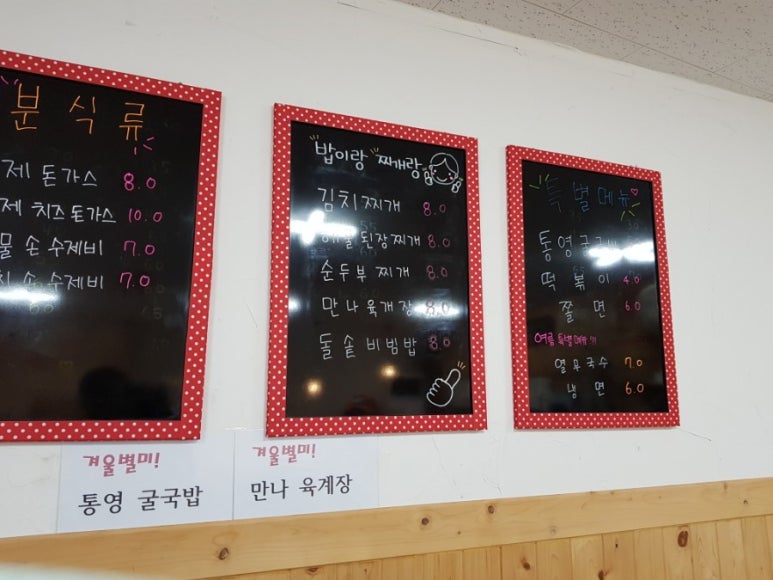 분식류
제 돈가스 8.0
제 치즈돈가스 10.0
물 손 수제비 7.0
손 수제비 7.0
"밥이랑 찌개랑"
김치찌개 8.0
해물된장찌개 8.0
순두부 찌개 8.0
만나육개장 8.0
돌솥비빔밥 8.0
특별메뉴♡
통영굴국밥
떡볶이 4.0
쫄면 6.0
여름 특별메뉴!!!
열무국수 7.0
냉면 6.0
겨울별미!
통영 굴국밥
겨울별미!
만나 육계장